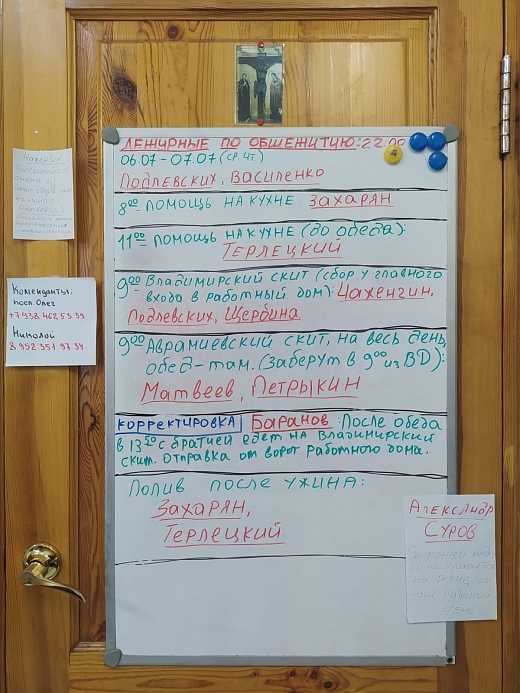 ДЕЖУРНЫЕ ПО ОБЩЕЖИТИЮ: 22.00
06.07 - 07.07 (СР. ЧТ.)
Подлевских, Василенко
8⁰⁰ ПОМОЩЬ НА КУХНЕ ЗАХАРЯН
11⁰⁰ ПОМОЩЬ НА КУХНЕ (ДО ОБЕДА):
ТЕРЛЕЦКИЙ
9⁰⁰ Владимирский скит (сбор у главного
входа в работный дом): Чахенгин,
Подлевских, Щербина
9⁰⁰ Авраамиевский скит, на весь день,
обед - там. (Заберут в 9⁰⁰ из ВД):
Матвеев, Петрыкин
КОРРЕКТИРОВКА Баранов: После обеда
в 13⁵⁰ с братией едет на Владимирский
скит. Отправка от ворот работного дома.
Полив после ужина:
Захарян,
Терлецкий.
Чахенгин
Коменданты:
посл. Олег
+7 958 462 53 39
Николай
8 952 351 97 34
Александр
Суров